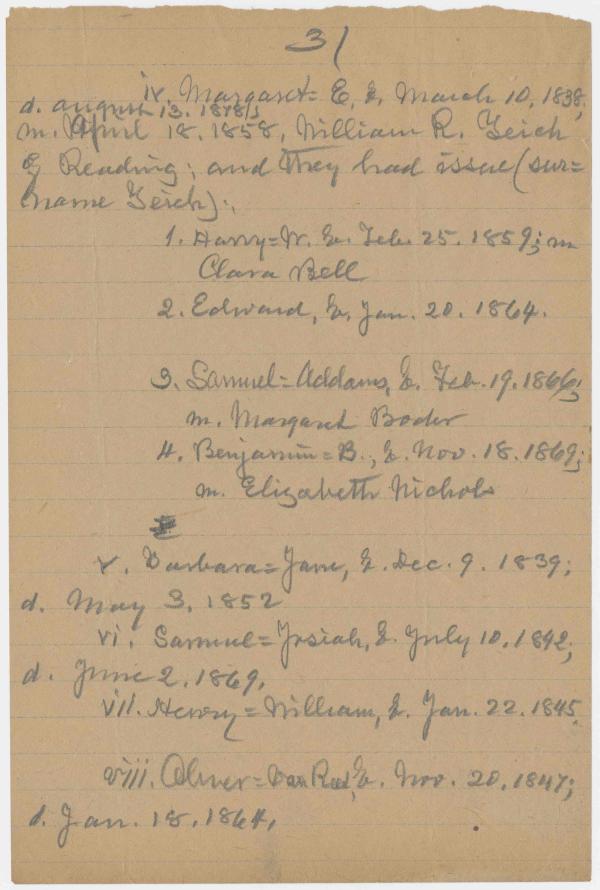 31
iv. Margaret= E, b. March 10, 1838;
d. august 13. 1878/;
m. April 18. 1858, William R. Zeich
of Reading; and they had issue (sur=
name Zeich):
1. Harry=W. b. Feb. 25. 1859; m
Clara Bell
2. Edward, b. Jan. 20. 1864.
3. Samuel=Addams, b. Feb. 19. 1866;
m. Margaret Boder
4. Benjamin=B., b. Nov. 18. 1869;
m. Elizabeth Nichols
v. Barbara=Jane, b. Dec. 9. 1839;
d. May 3, 1852
vi. Samuel=Josiah, b. July 10, 1842;
d. June 2, 1869.
vii. Henry=William, b. Jan. 22. 1845
viii. Oliver=Van Reed, b. Nov. 20, 1847;
d. Jan. 18. 1864.